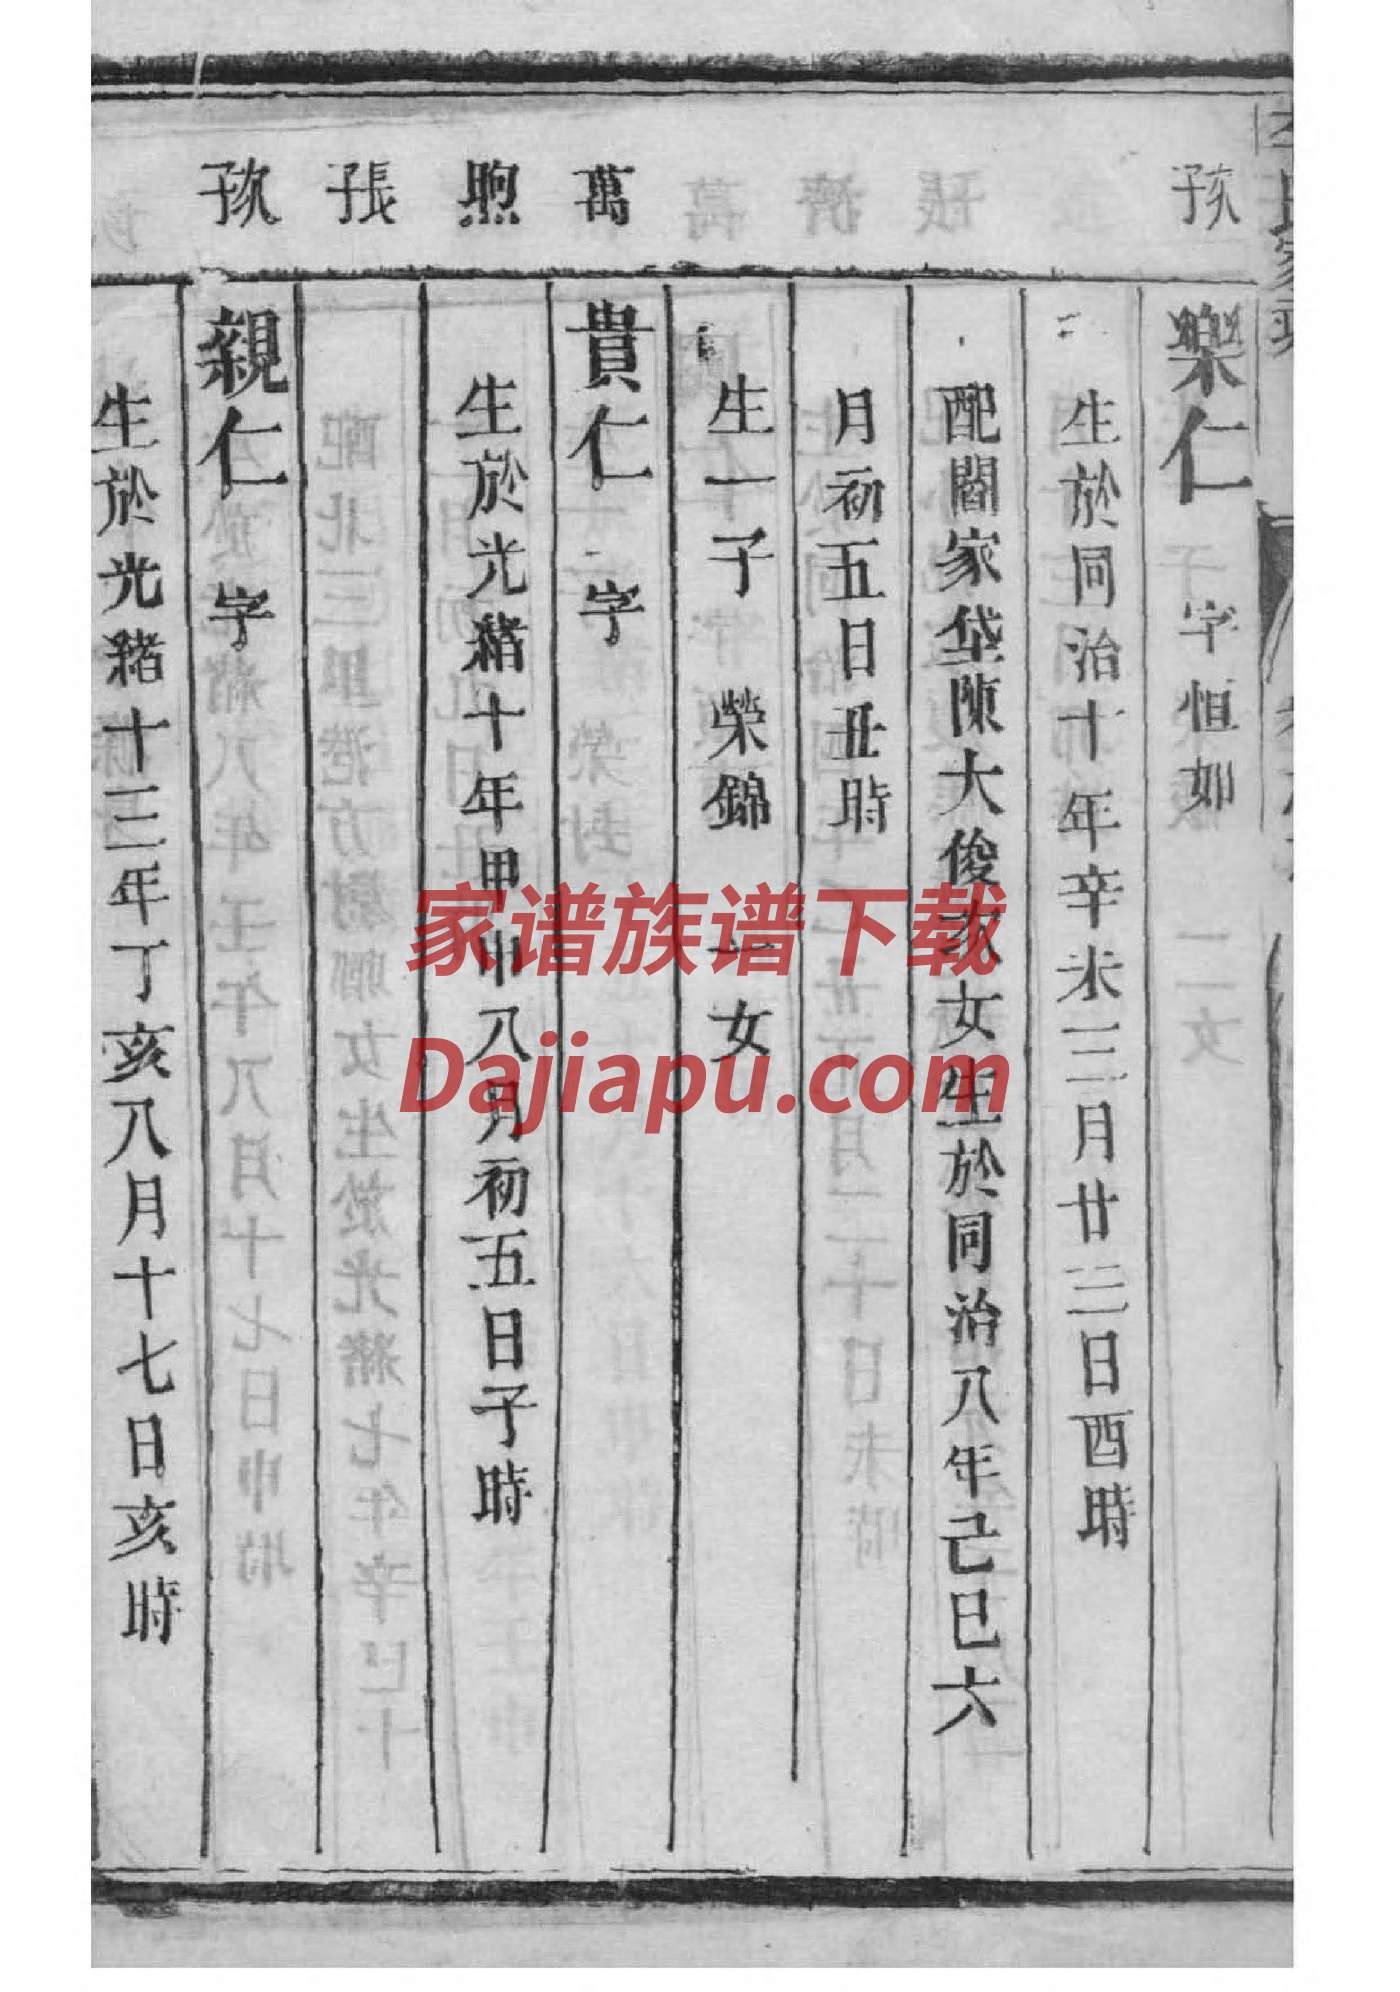 孩
樂仁 字恒如
生於同治十年辛未三月廿三日酉時
配閻家垡陳大俊孩女生於同治八年己巳六
月初五日丑時
生一子 榮錦 一女
萬
貴仁 字
煦
生於光緒十年甲申八月初五日子時
張
孩
親仁 字
生於光緒十三年丁亥八月十七日亥時
家谱族谱下载
Dajiapu.com